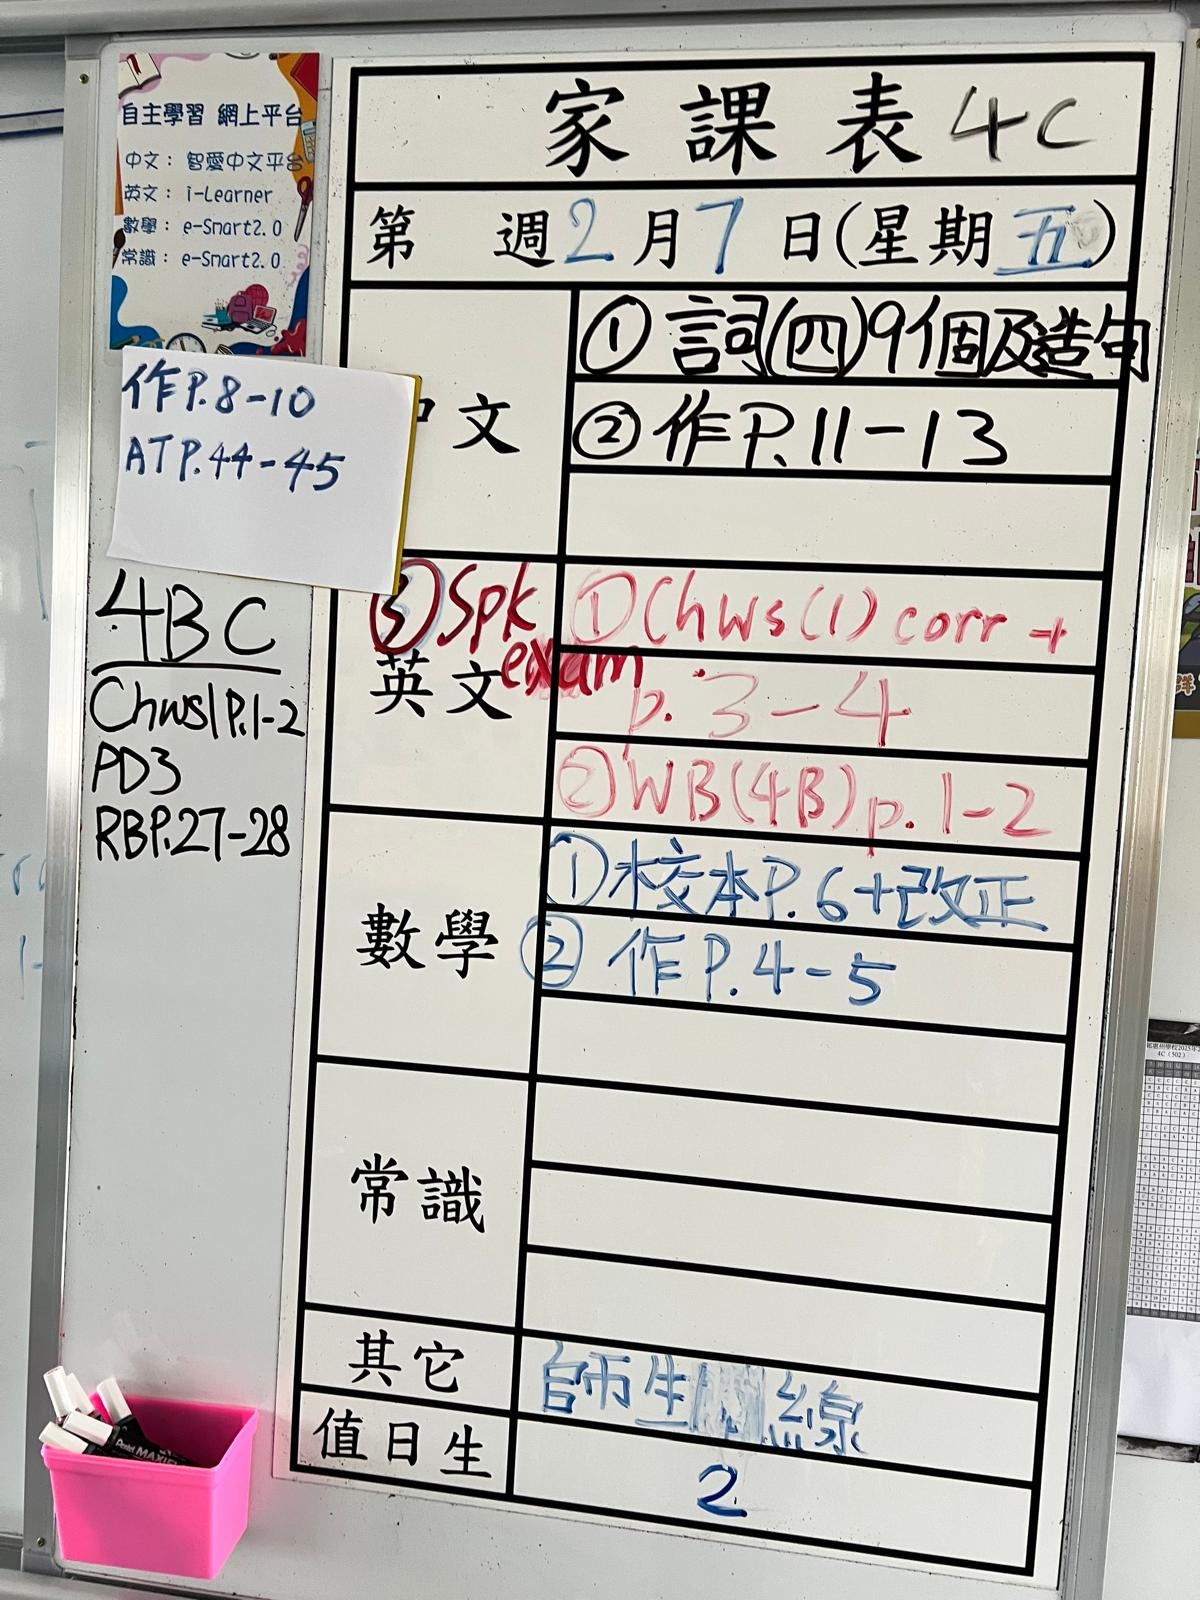 家課表 4C
第 週 2月7日(星期五)
自主學習 網上平台
中文： 智愛中文平台
英文： i-Learner
數學： e-Smart2.0
常識： e-Smart2.0
作P.8-10
ATP.44-45
4BC
Chws1P.1-2
PD3
RBP.27-28
文
① 詞(四)9個及造句
② 作P.11-13
英文
③ Spk exam
① Chws(1) corr +
p.3-4
② WB(4B)p.1-2
數學
① 校本P.6+改正
② 作P.4-5
常識
其它
師生 線
值日生
2
4C (502)